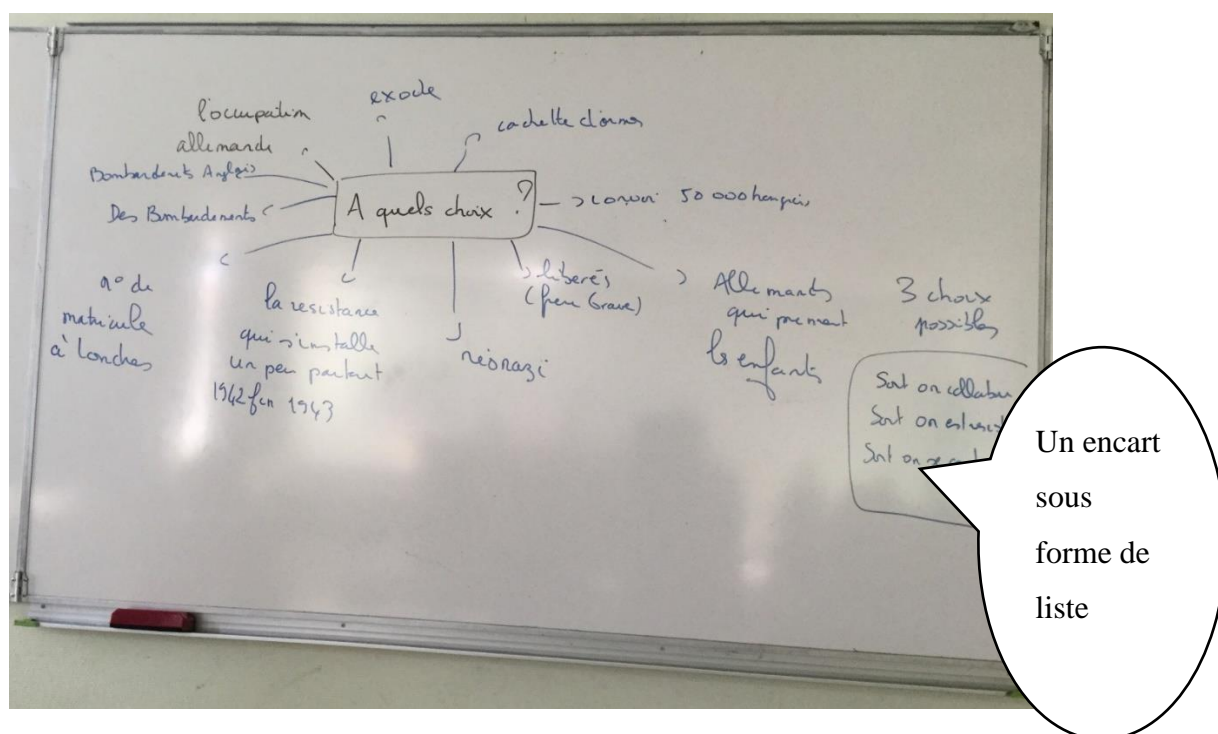 exode
l'occupation
allemande
cachette d'armes
Bombardements Anglais
Des Bombardements
A quels choix ?
50 000
n° de
matricule
à Londres
la resistance
qui s'installe
un peu partout
1942 fin 1943
néonazi
libérés
(frère Grave)
Allemants
qui prennent
les enfants
3 choix
possibles
Soit on
Soit on est
Soit on
Un encart
sous
forme de
liste